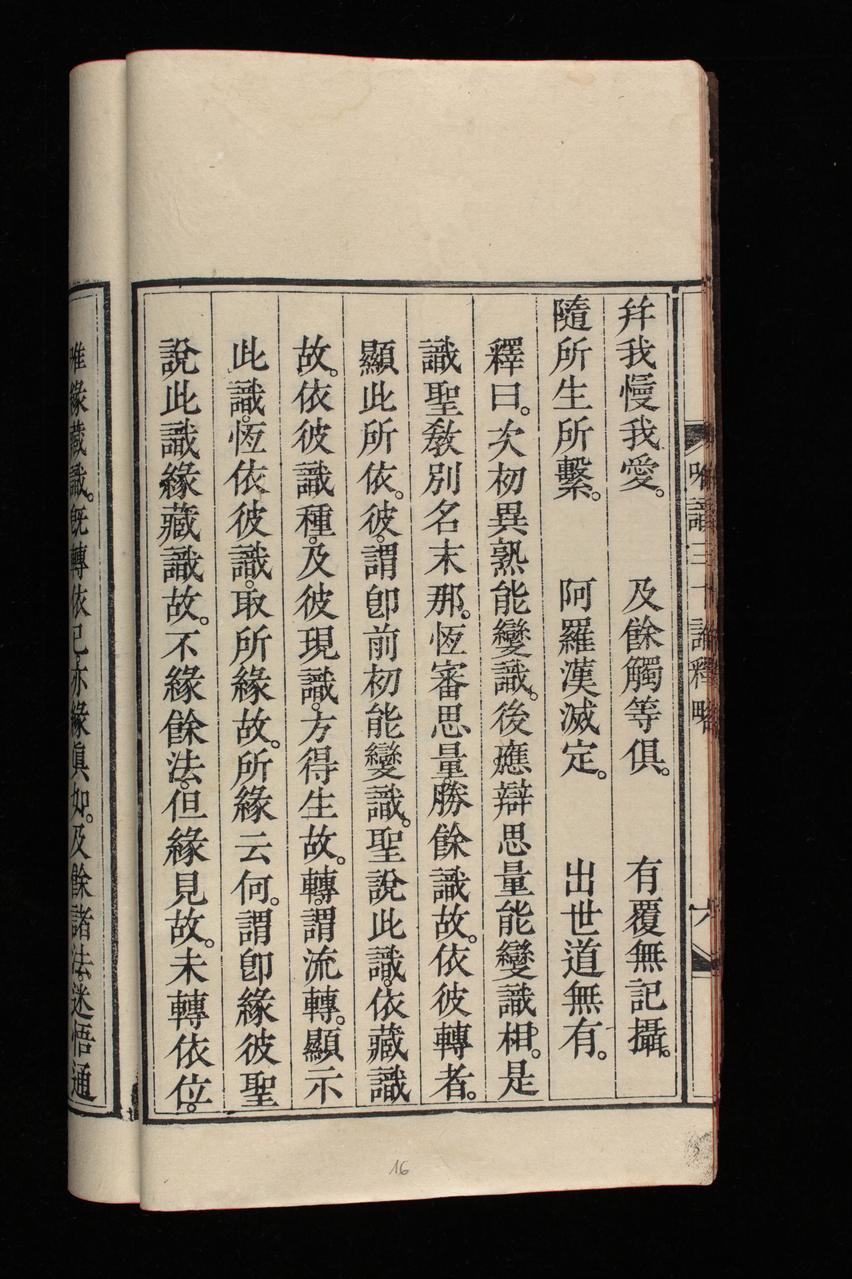 唯識三十論釋略
六
幷我慢我愛。 及餘觸等俱。 有覆無記攝。
隨所生所繫。 阿羅漢滅定。 出世道無有。
釋曰。次初異熟能變識。後應辯思量能變識相。是
識聖敎別名末那。恆審思量。勝餘識故。依彼轉者。
顯此所依。彼。謂卽前初能變識。聖說此識。依藏識
故。依彼識種。及彼現識。方得生故。轉。謂流轉。顯示
此識。恆依彼識。取所緣故。所緣云何。謂卽緣彼聖
說此識緣藏識故。不緣餘法。但緣見故。未轉依位。
唯緣藏識。旣轉依已。亦緣眞如。及餘諸法。迷悟通
16